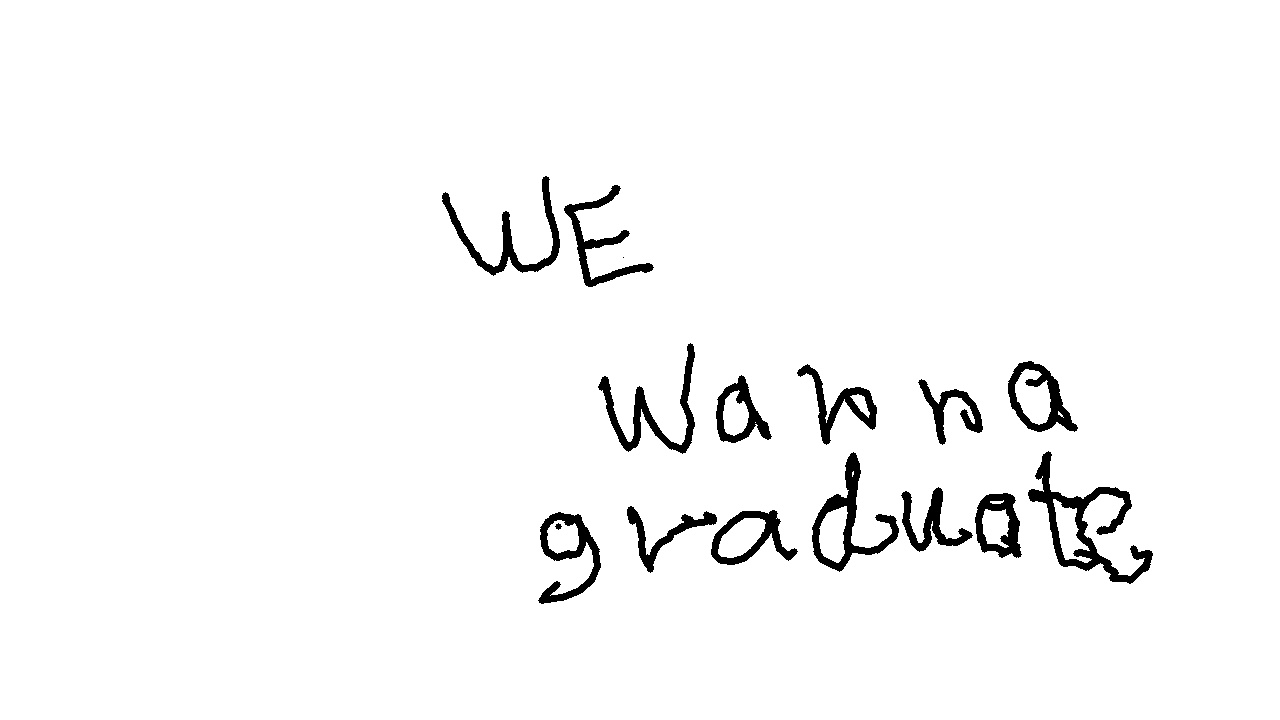 WE
wanna
graduate